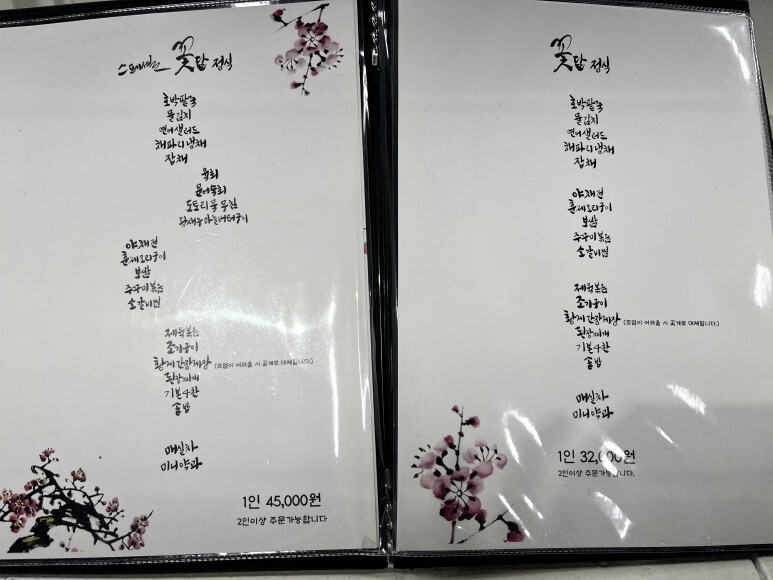 스페셜 꽃담 정식
호박팥죽
물김치
연어샐러드
해파리냉채
잡채
육회
문어숙회
도토리묵 무침
왕새우마늘버터구이
야채전
훈제오리구이
보쌈
쭈꾸미볶음
소갈비찜
제육볶음
조기구이
황게간장게장 (조업이 어려울 시 꽃게로 대체됩니다.)
된장찌개
기본4찬
솥밥
매실차
미니약과
1인 45,000원
2인이상 주문가능합니다
꽃담 정식
호박팥죽
물김치
연어샐러드
해파리냉채
잡채
야채전
훈제오리구이
보쌈
쭈꾸미볶음
소갈비찜
제육볶음
조기구이
황게간장게장 (조업이 어려울 시 꽃게로 대체됩니다.)
된장찌개
기본4찬
솥밥
매실차
미니약과
1인 32,000원
2인이상 주문가능합니다.